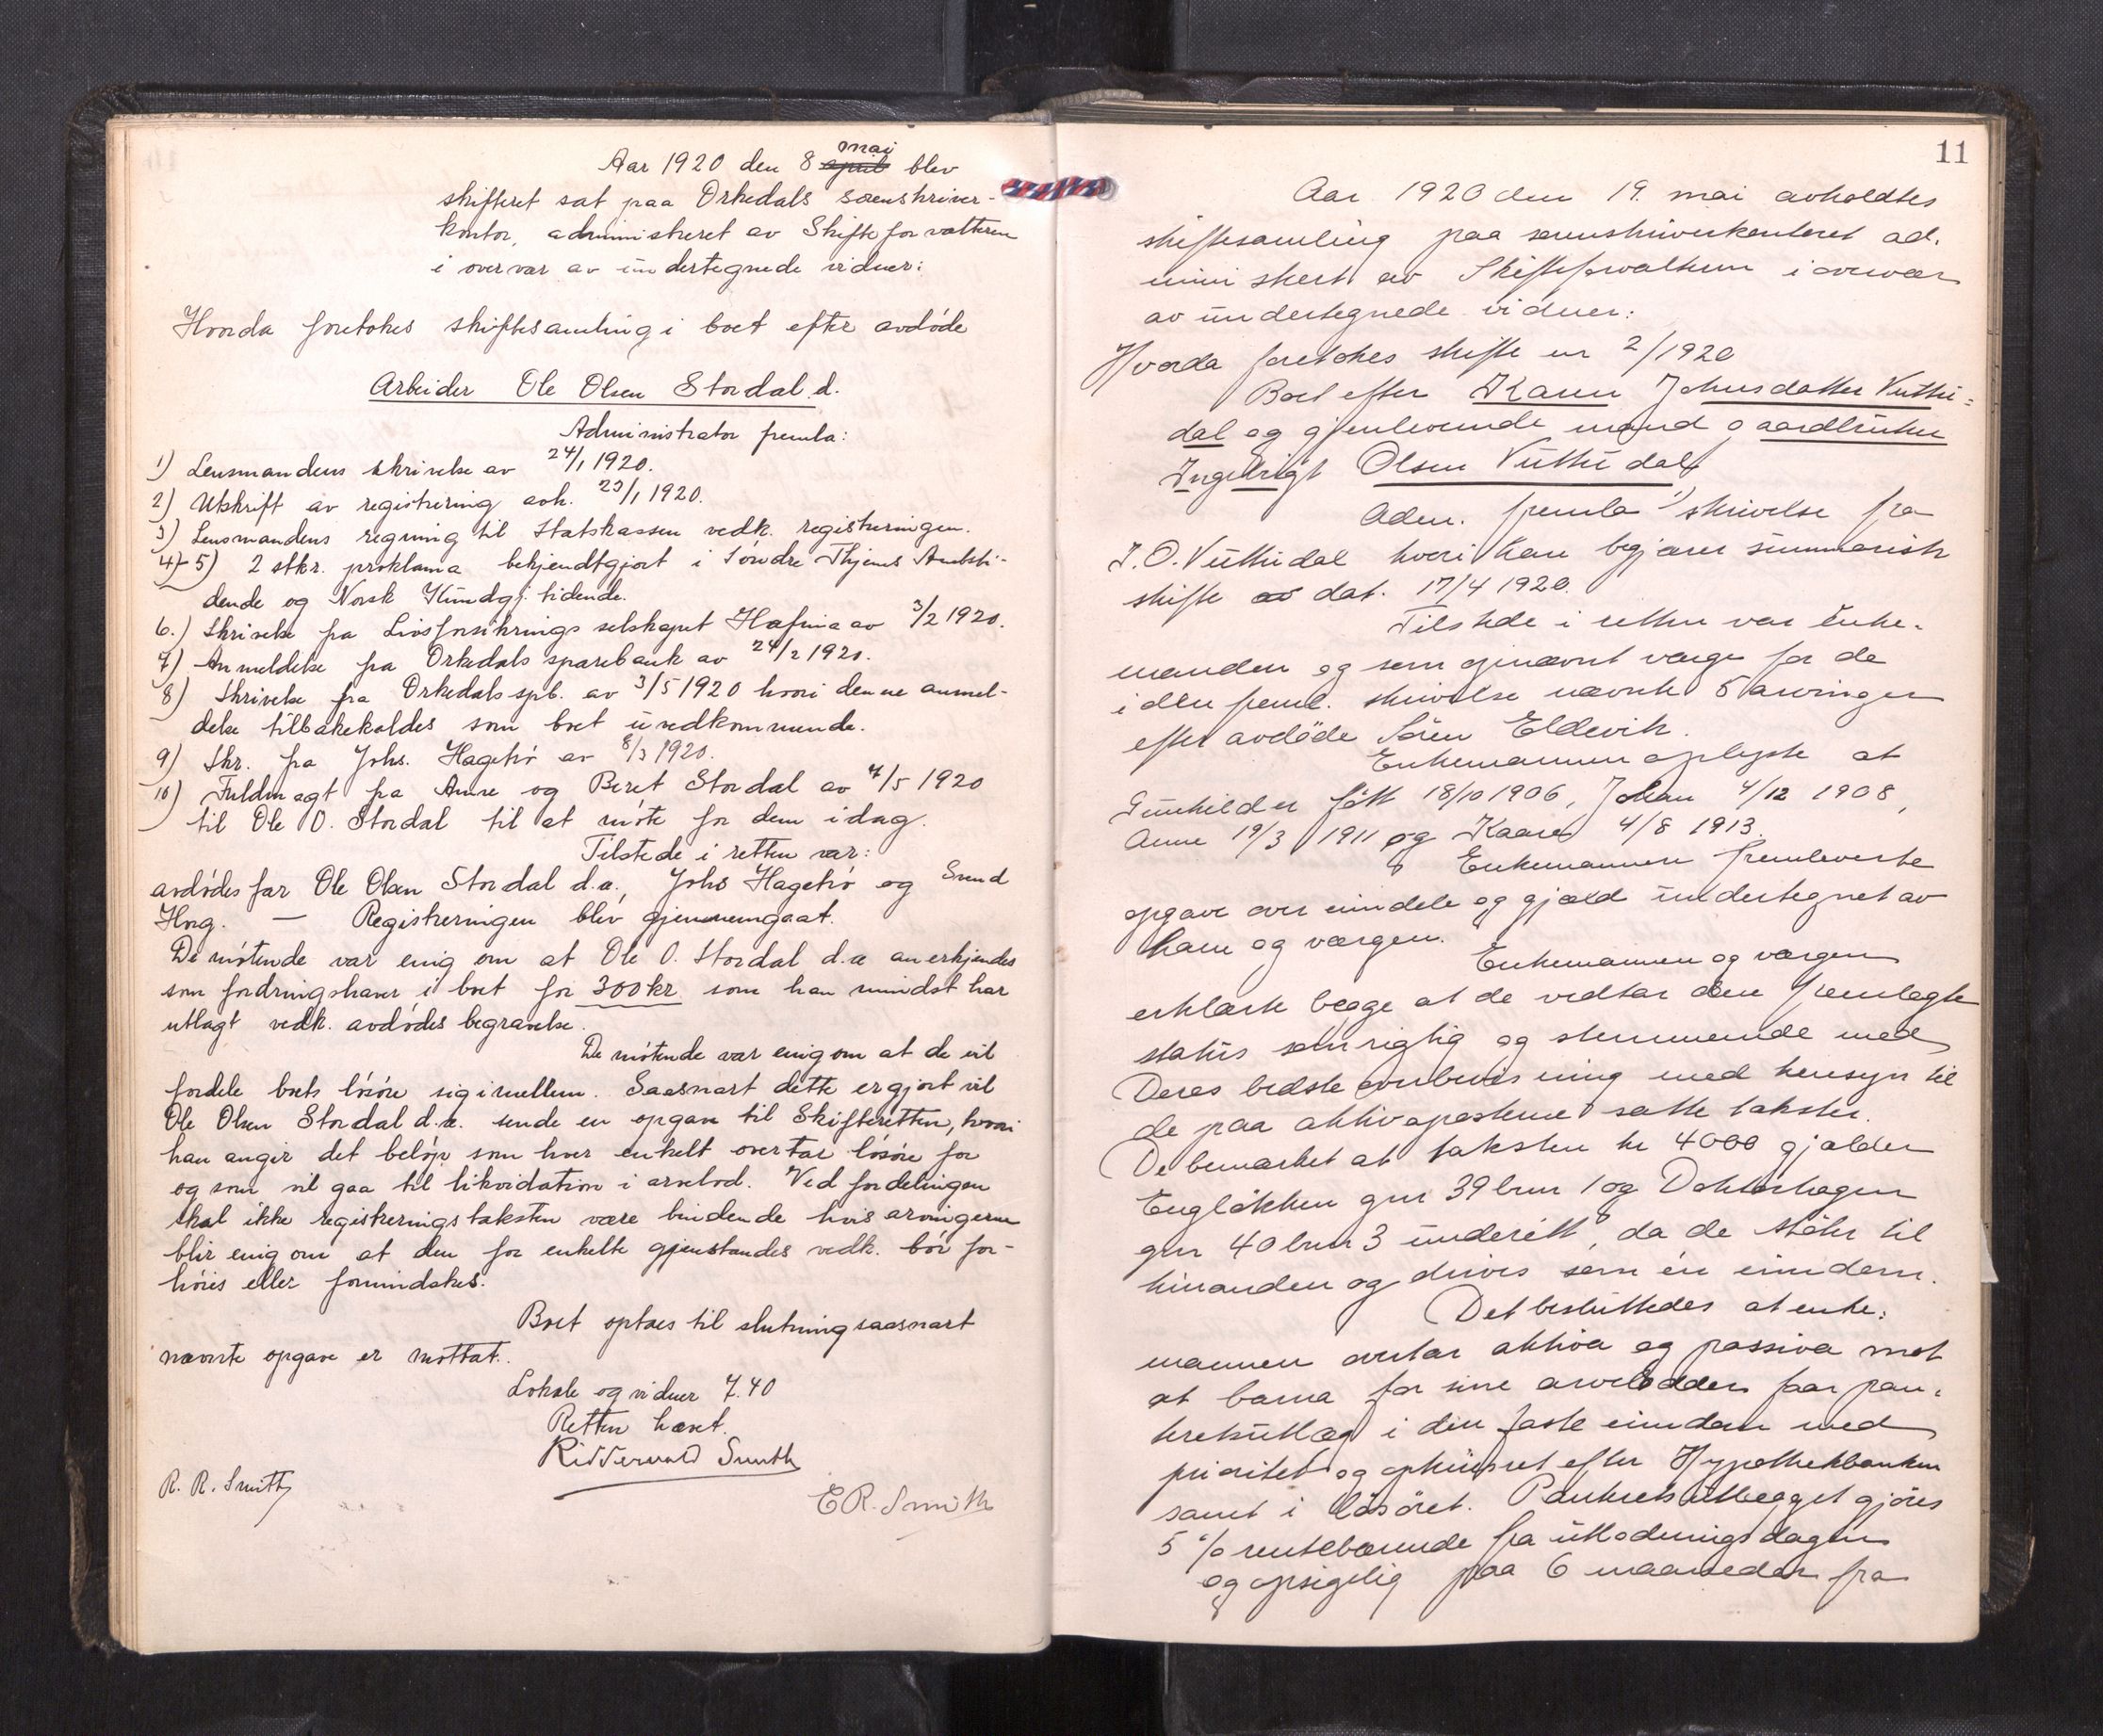 Aar 1920 den 8 april mai blev
skifteret sat paa Orkedals sorenskriver-
kontor, administreret av Skifteforvalteren
i overvær av undertegnede vidner:
Hvorda foretokes skiftesamling i boet efter avdøde
Arbeider Ole Olsen Stordal d.
Administrator fremla:
1) Lensmandens skrivelse av 24/1 1920.
2) Utskrift av registrering avh. 23/1 1920.
3) Lensmandens regning til Statskassen vedk. registreringen.
4)-5) 2 stkr. proklama bekjendtgjort i Søndre Thjems Amtsti-
dende og Norsk Kundgj. tidende.
6.) Skrivelse fra Livsforsikrings selskapet Hafnia av 3/2 1920.
7) Anmeldelse fra Orkedals sparebank av 24/2 1920.
8) Skrivelse fra Orkedals spb. av 3/5 1920 hvori denne anmel-
delse tilbakekaldes som boet uvedkommende.
9) Skr. fra Johs. Hagetrø av 8/3 1920.
10) Fuldmagt fra Anne og Beret Stordal av 7/5 1920
til Ole O. Stordal til at møte for dem idag.
Tilstede i retten var:
avdødes far Ole Olsen Stordal d.æ., Johs Hagetrø og Svend
Hog. — Registreringen blev gjennemgaat.
De møtende var enig om at Ole O. Stordal d.æ anerkjendes
som fordringshaver i boet for 300 kr som han mindst har
utlagt vedk. avdødes begravelse.
De møtende var enig om at de vil
fordele boets løsøre sig imellem. Saasnart dette er gjort vil
Ole Olsen Stordal d.æ. sende en opgave til Skifteretten, hvori
han angir det beløp som hver enkelt overtar løsøre for
og som vil gaa til likvidation i arvelod. Ved fordelingen
skal ikke registreringstaksten være bindende hvis arvingerne
blir enig om at den for enkelte gjenstandes vedk. bør for-
høies eller formindskes.
Boet optaes til slutning saasnart
nævnte opgave er mottat.
Lokale og vidner 7.40
Retten hævet.
Ridderwold Smith
R. R. Smith
E R. Smith
11
Aar 1920 den 19. mai avholdtes
skiftesamling paa sorenskriverkontoret ad.
ministrert av Skifteforvalteren i overvær
av undertegnede vidner:
Hvorda foretokes skifte nr 2/1920
Boet efter Karen Johnsdatter Vuttu=
dal og gjenlevende mand gaardbruker
Ingebrigt Olsen Vuttudal
Adm. fremla 1) skrivelse fra
I. O. Vuttudal hvori han begjærer summarisk
skifte av dat. 17/4 1920.
Tilstede i retten var enke-
manden og som opnævnt værge for de
i den freml. skrivelse nævnte 5 arvinger
efter avdøde Søren Eldevik.
Enkemannen oplyste at
Gunhild er født 18/10 1906, Johan 4/12 1908,
Anne 19/3 1911 og Kaare 4/8 1913.
Enkemannen fremleverte
opgave over eiendele og gjæld undertegnet av
ham og værgen.
Enkemannen og værgen
erklærte begge at de vedtar den fremlagte
status som rigtig og stemmende med
Deres bedste overbevisning med hensyn til
de paa aktivaposterne satte takster.
De bemærket at taksten kr 4000 gjælder
Engløkken gnr 39 bnr 1 og Dokterhagen
gnr 40 bnr 3 underett, da de støter til
hinanden og drives som én eiendom.
Det besluttedes at enke-
mannen overtar aktiva og passiva mot
at barna for sine arvelodder faar pan-
teretsutlæg i den faste eiendom med
prioritet og opkrævet efter Hypothekbanken
samt i løsøret. Panteretsutlegget gjøres
5 % rentebærende fra utlodningsdagen
og opsigelig paa 6 maaneder fra